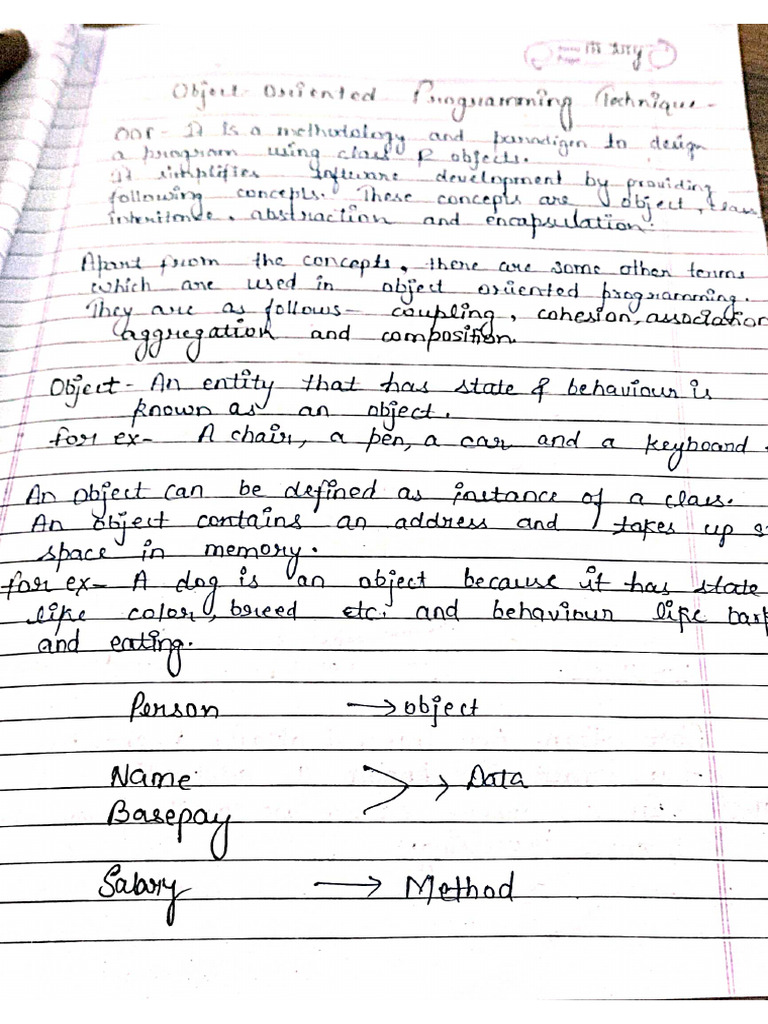 Object Oriented Programming Technique -
OOP - It is a methodology and paradigm to design
a program using class & objects.
It simplifies software development by providing
following concepts. These concepts are object, class
inheritance, abstraction and encapsulation.
Apart from the concepts, there are some other terms
which are used in object oriented programming.
They are as follows - coupling, cohesion, association
aggregation and composition.
Object - An entity that has state & behaviour is
known as an object.
for ex - A chair, a pen, a car and a keyboard
An object can be defined as instance of a class.
An object contains an address and takes up
space in memory.
for ex - A dog is an object because it has state
like color, breed etc. and behaviour like
and eating.
Person → object
Name
→ Data
Basepay
Salary → Method